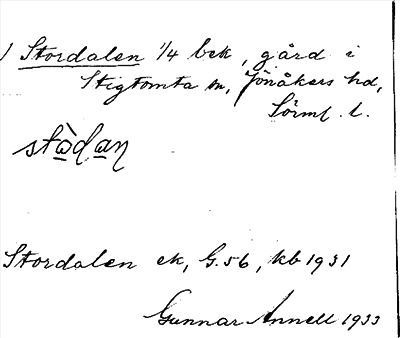 Stordalen 1/4 bek, gård i
Stigtomta sn, Jönåkers hd,
Sörml. l.
stò̱da̱n
Stordalen ek, G. 56, kb 1931
Gunnar Annell 1933